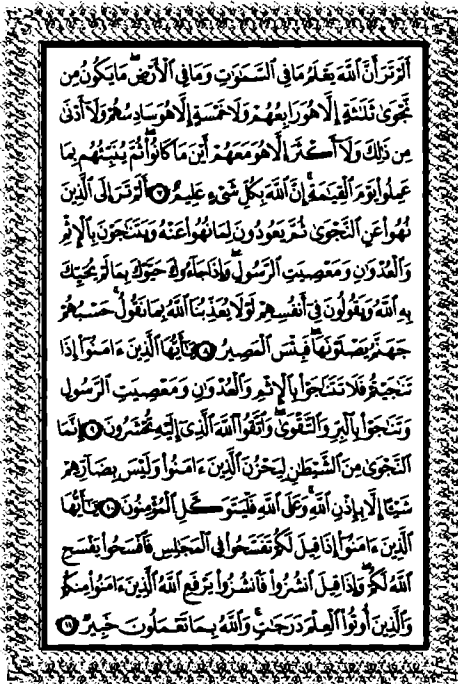 أَلَمْ تَرَ أَنَّ ٱللَّهَ يَعْلَمُ مَا فِي ٱلسَّمَٰوَٰتِ وَمَا فِي ٱلْأَرْضِۖ مَا يَكُونُ مِن
نَّجْوَىٰ ثَلَٰثَةٍ إِلَّا هُوَ رَابِعُهُمْ وَلَا خَمْسَةٍ إِلَّا هُوَ سَادِسُهُمْ وَلَآ أَدْنَىٰ
مِن ذَٰلِكَ وَلَآ أَكْثَرَ إِلَّا هُوَ مَعَهُمْ أَيْنَ مَا كَانُوا۟ۖ ثُمَّ يُنَبِّئُهُم بِمَا
عَمِلُوا۟ يَوْمَ ٱلْقِيَٰمَةِۚ إِنَّ ٱللَّهَ بِكُلِّ شَيْءٍ عَلِيمٌ ٧ أَلَمْ تَرَ إِلَى ٱلَّذِينَ
نُهُوا۟ عَنِ ٱلنَّجْوَىٰ ثُمَّ يَعُودُونَ لِمَا نُهُوا۟ عَنْهُ وَيَتَنَٰجَوْنَ بِٱلْإِثْمِ
وَٱلْعُدْوَٰنِ وَمَعْصِيَتِ ٱلرَّسُولِۖ وَإِذَا جَآءُوكَ حَيَّوْكَ بِمَا لَمْ يُحَيِّكَ
بِهِ ٱللَّهُ وَيَقُولُونَ فِيٓ أَنفُسِهِمْ لَوْلَا يُعَذِّبُنَا ٱللَّهُ بِمَا نَقُولُۚ حَسْبُهُمْ
جَهَنَّمُ يَصْلَوْنَهَاۖ فَبِئْسَ ٱلْمَصِيرُ ٨ يَٰٓأَيُّهَا ٱلَّذِينَ ءَامَنُوٓا۟ إِذَا
تَنَٰجَيْتُمْ فَلَا تَتَنَٰجَوْا۟ بِٱلْإِثْمِ وَٱلْعُدْوَٰنِ وَمَعْصِيَتِ ٱلرَّسُولِ
وَتَنَٰجَوْا۟ بِٱلْبِرِّ وَٱلتَّقْوَىٰۖ وَٱتَّقُوا۟ ٱللَّهَ ٱلَّذِيٓ إِلَيْهِ تُحْشَرُونَ ٩ إِنَّمَا
ٱلنَّجْوَىٰ مِنَ ٱلشَّيْطَٰنِ لِيَحْزُنَ ٱلَّذِينَ ءَامَنُوا۟ وَلَيْسَ بِضَآرِّهِمْ
شَيْـًٔا إِلَّا بِإِذْنِ ٱللَّهِۚ وَعَلَى ٱللَّهِ فَلْيَتَوَكَّلِ ٱلْمُؤْمِنُونَ ١٠ يَٰٓأَيُّهَا
ٱلَّذِينَ ءَامَنُوٓا۟ إِذَا قِيلَ لَكُمْ تَفَسَّحُوا۟ فِي ٱلْمَجَٰلِسِ فَٱفْسَحُوا۟ يَفْسَحِ
ٱللَّهُ لَكُمْۖ وَإِذَا قِيلَ ٱنشُزُوا۟ فَٱنشُزُوا۟ يَرْفَعِ ٱللَّهُ ٱلَّذِينَ ءَامَنُوا۟ مِنكُمْ
وَٱلَّذِينَ أُوتُوا۟ ٱلْعِلْمَ دَرَجَٰتٍۚ وَٱللَّهُ بِمَا تَعْمَلُونَ خَبِيرٌ ١١